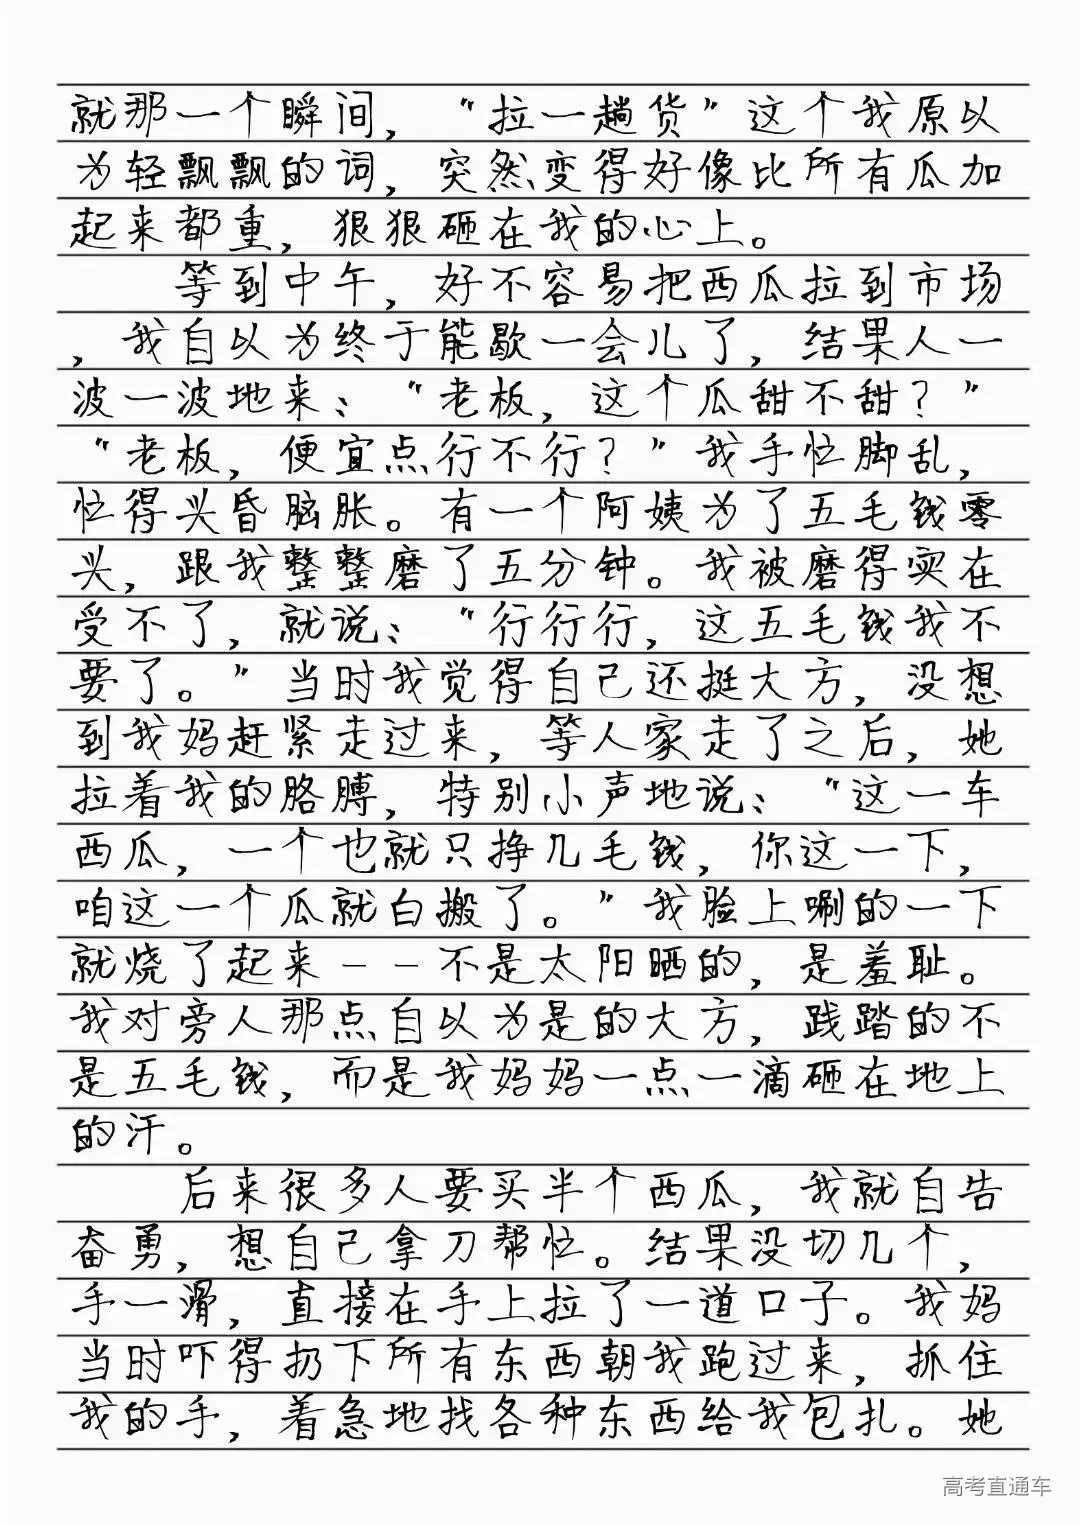 就那一个瞬间，“拉一趟货”这个我原以
为轻飘飘的词，突然变得好像比所有瓜加
起来都重，狠狠砸在我的心上。
等到中午，好不容易把西瓜拉到市场
，我自以为终于能歇一会儿了，结果人一
波一波地来：“老板，这个瓜甜不甜？”
“老板，便宜点行不行？”我手忙脚乱，
忙得头昏脑胀。有一个阿姨为了五毛钱零
头，跟我整整磨了五分钟。我被磨得实在
受不了，就说：“行行行，这五毛钱我不
要了。”当时我觉得自己还挺大方，没想
到我妈赶紧走过来，等人家走了之后，她
拉着我的胳膊，特别小声地说：“这一车
西瓜，一个也就只挣几毛钱，你这一下，
咱这一个瓜就白搬了。”我脸上唰的一下
就烧了起来——不是太阳晒的，是羞耻。
我对旁人那点自以为是的大方，践踏的不
是五毛钱，而是我妈妈一点一滴砸在地上
的汗。
后来很多人要买半个西瓜，我就自告
奋勇，想自己拿刀帮忙。结果没切几个，
手一滑，直接在手上拉了一道口子。我妈
当时吓得扔下所有东西朝我跑过来，抓住
我的手，着急地找各种东西给我包扎。她
高考直通车